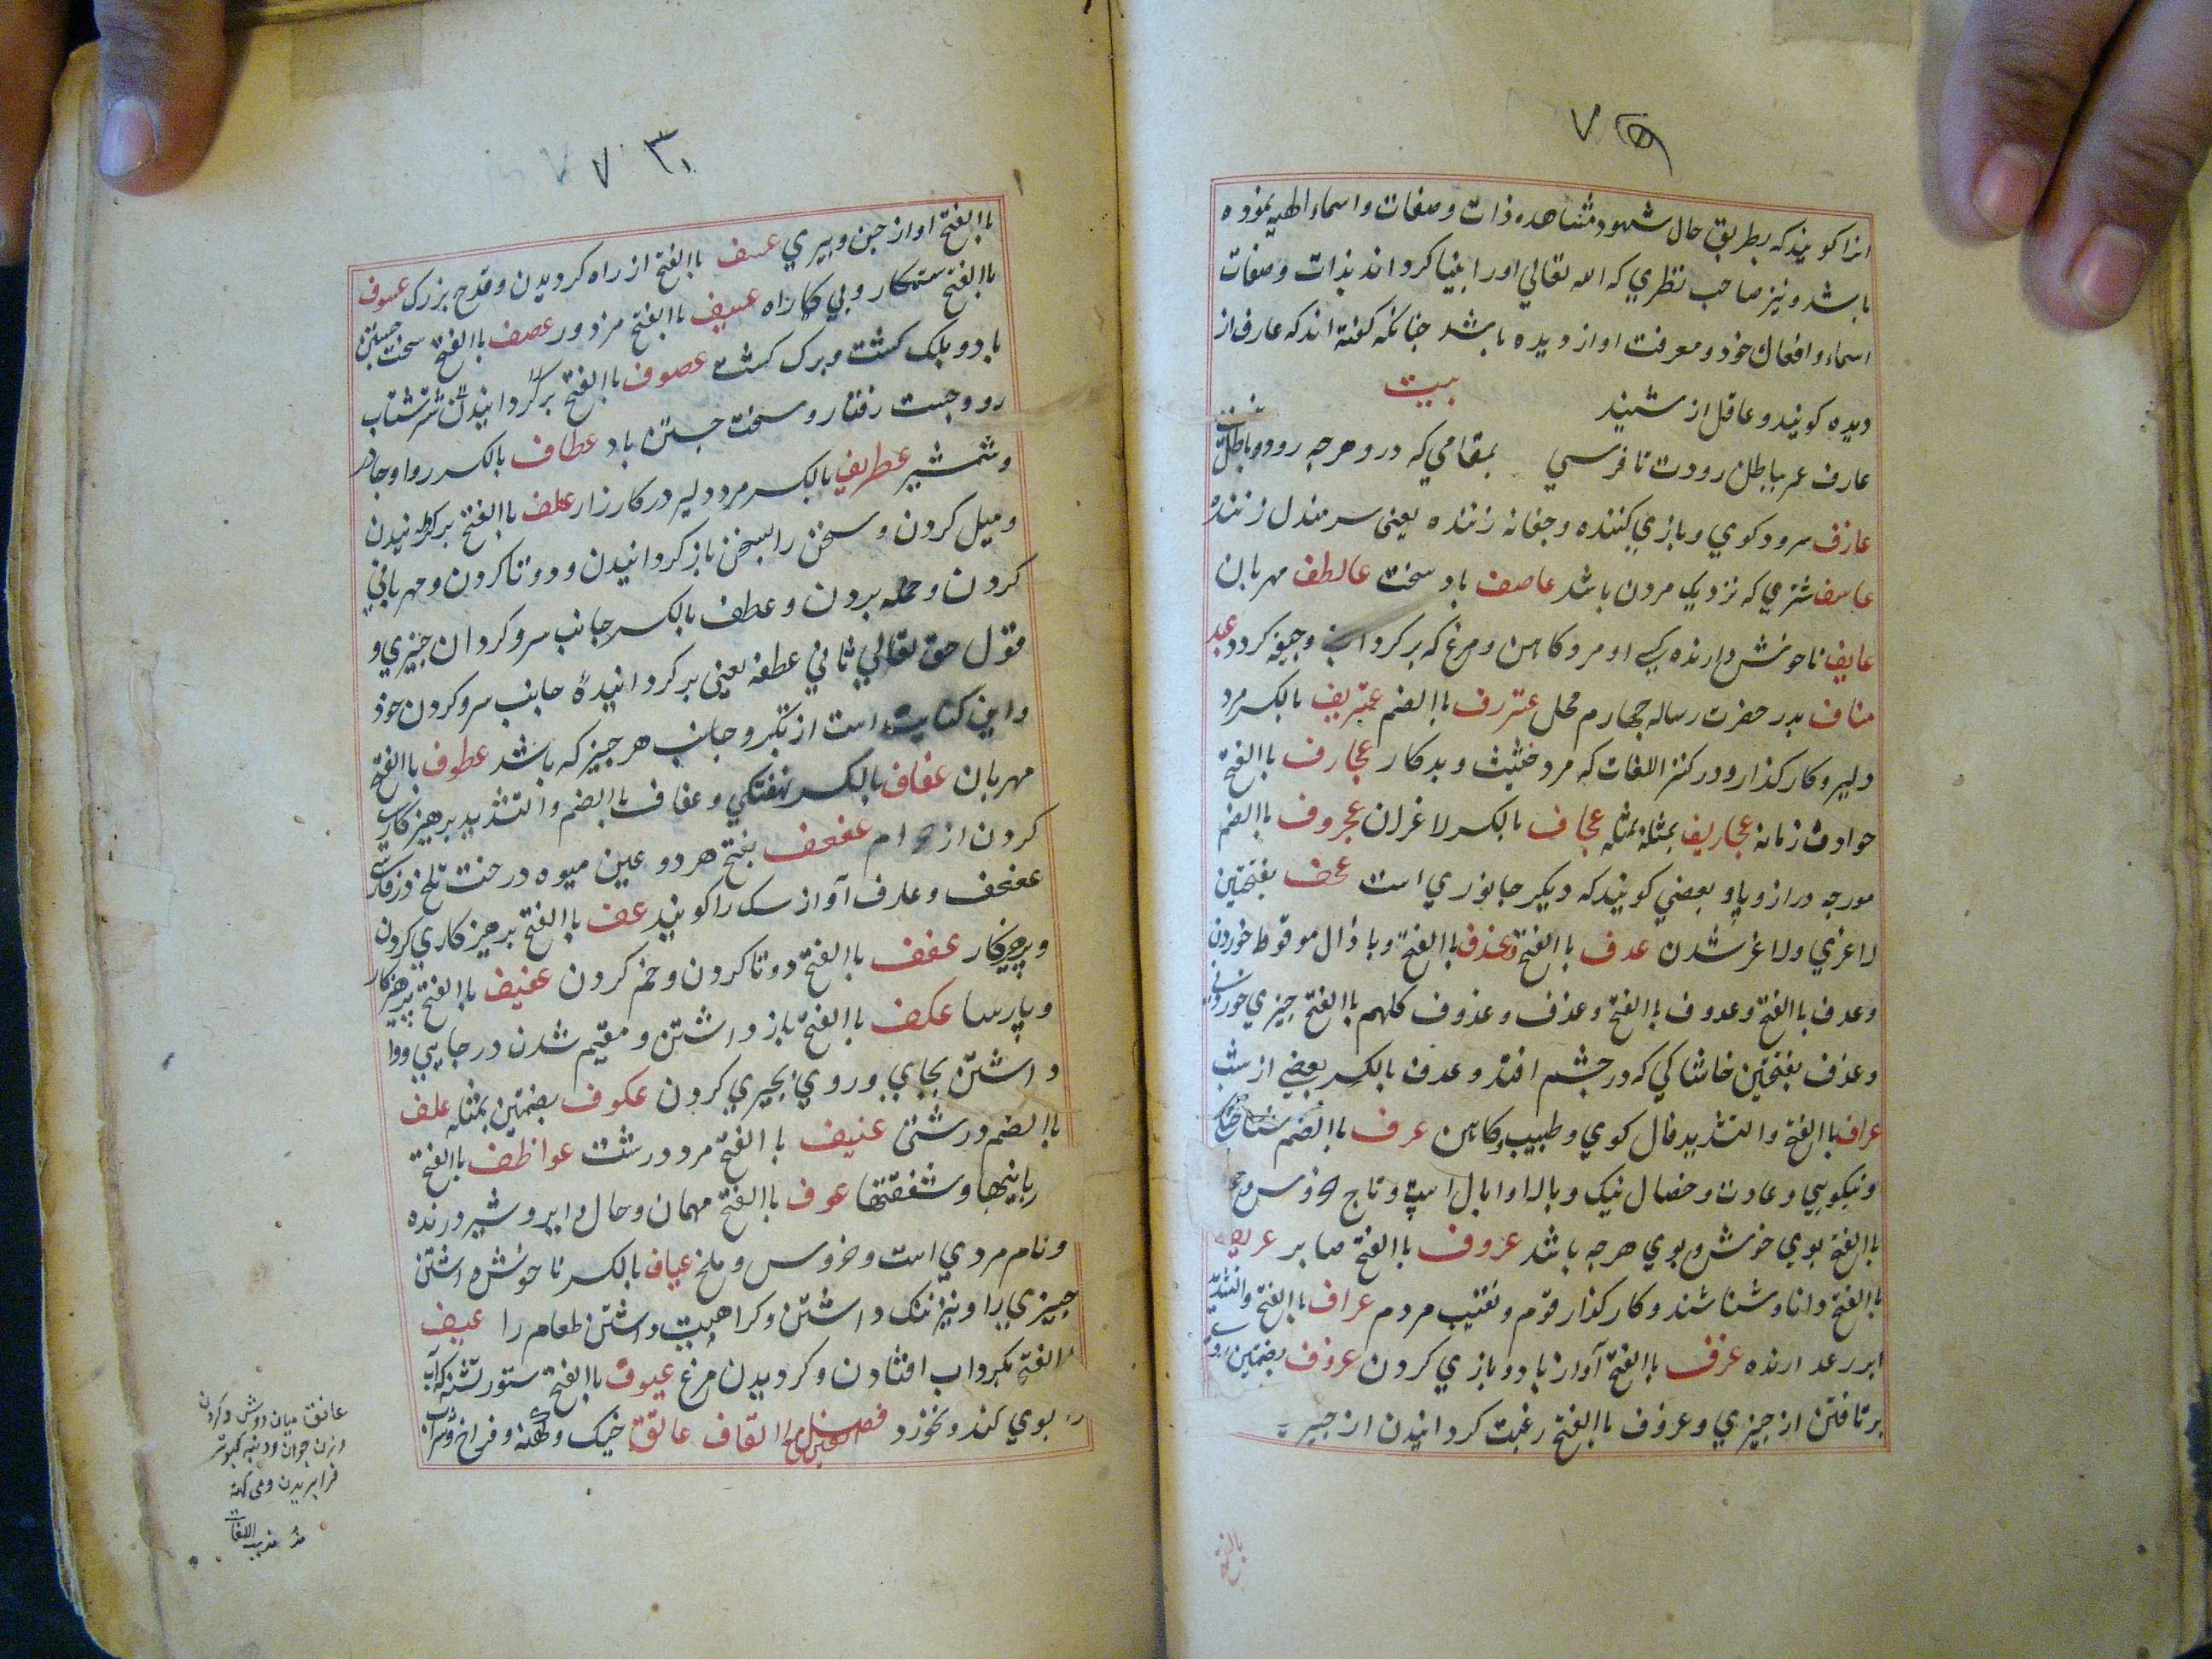 انرا کویند که بطریق حال شهود مشاهده ذات و صفات و اسماء الهیه نموده
باشد و نیز صاحب نظری که الله تعالی اورا بینا کرداند بذات و صفات
اسماء و افعال خود و معرفت او از دیده باشد جنانکه کفته اند که عارف از
دیده کویند و عاقل از شنید
بیت
عارف عمر بباطن رودت تا نرسی بمقامی که درو هرجه رود باطل نیست
عازف سرود کوی و بازی کننده و جغانه زننده یعنی سر مندل زننده
عاسف شتری که نزدیک مردن باشد عاصف باد سخت عاطف مهربان
عایف ناخوش دارنده و مرد کاهن و مرغ که بر کرد اب و جیفه کردد عبد
مناف بدر حضرت رساله جهارم محل عترف باالضم عتریف بالکسر مرد
دلیر و کارکذار و در کنز اللغات که مرد خبیث و بدکار عجارف باالفتح
حوادث زمانه عجاریف بمثله عجاف بالکسر لاغران عجروف باالضم
مورجه دراز و پا و بعضی کویند که دیکر جانوری است عجف بفتحتین
لاغری و لاغر شدن عدف باالفتح و عذف باالفتح و با ذال موقوط خوردن
وعدف باالفتح وعدوف باالفتح وعذف وعذوف کلهم باالفتح جیزی خوردنی
وعدف بفتحتین خاشاکی که در جشم افتد وعدف بالکسر بعضی از شب
عراف باالفتح والتشدید فال کوی و طبیب و کاهن عرف باالضم شناختکی
و نیکویی و عادت و خصال نیک و بالا و ایال اسپ و تاج خروس
باالفتح بوی خوش و بوی هرجه باشد عروف باالفتح صابر عریف
باالفتح دانا و شناسنده و کارکذار قوم و نقیب مردم عزاف باالفتح والتشدید
ابر رعد ارنده عزف باالفتح آواز باد و بازی کردن عزوف بضمتین
برتافتن از جیزی و عزوف باالفتح رغبت کردانیدن از جیز
بالفتح
۷۷۳
باالفتح اواز جن و پیری عسف باالفتح از راه کردیدن و قدح بزرک عسوف
باالفتح ستمکار و بی کاراه عسیف باالفتح مزدور عصف باالفتح سخت جستن
باد و بلک کشت و برک کشت عصوف باالفتح برکردانیدن شتر شتاب
رو و جست رفتار و سخت جستن باد عطاف بالکسر ردا و جادر
و شمشیر عطریف بالکسر مرد دلیر در کارزار عطف باالفتح برکردانیدن
و میل کردن و سخن را بسخن باز کردانیدن و دوتا کردن و مهربانی
کردن و حمله بردن و عطف بالکسر جانب سر و کردان جیزی و
قول حق تعالی ثانی عطفه یعنی برکردانیده جانب سر و کردن خود
و این کنایت است از تکبر و جانب هر جیز که باشد عطوف باالفتح
مهربان عفاف بالکسر نهفتکی و عفاف باالضم والتشدید برهیزکاری
کردن از حرام عفعف بفتح هر دو عین میوه درخت تلخ
عفعف و علرف آواز سک را کویند عف باالفتح برهیزکاری کردن
و پرهیزکار عفف باالفتح دوتا کردن و خم کردن عفیف باالفتح پرهیزکار
و پارسا عکف باالفتح باز داشتن و مقیم شدن در جایی و وا
داشتن بجای و روی بجیزی کردن عکوف بضمتین بمثله علف
باالضم درشتی عنیف باالفتح مرد درشت عواطف باالفتح
ربانیها و شفقتها عوف باالفتح مهمان و حال و ایر و شیر درنده
و نام مردی است و خروس و ملخ عیاف بالکسر ناخوش داشتن
جیزی را و نیز ننک داشتن و کراهیت داشتن طعام را عیف
باالفتح بکرد اب افتادن و کردیدن مرغ عیوف باالفتح ستور تشنه که آب
را بوی کند و نخورد فصل العین مع القاف عاتق خیک و کهنه و فراخ و شراب
عاتق میان دوش و کردن
و زن جوان و
فرا پریدن و می کهنه